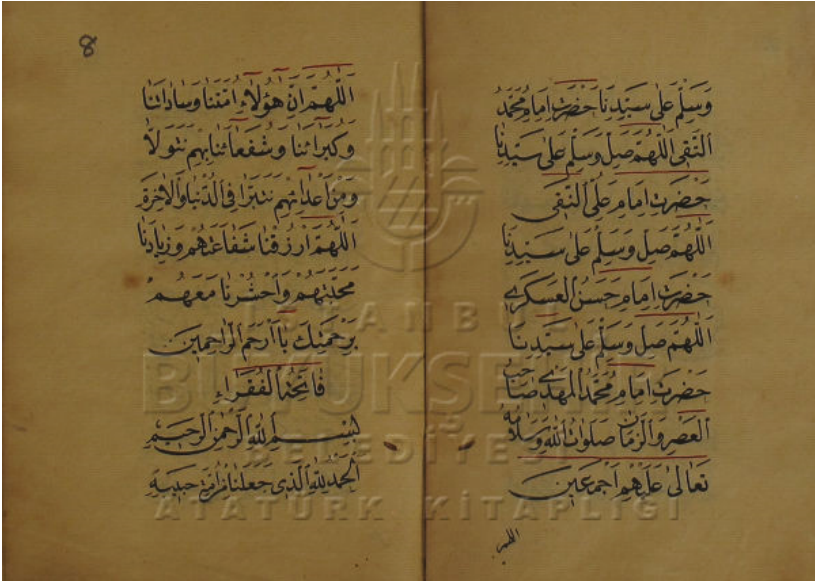 وَسَلِّمْ عَلٰى سَيِّدِنَا حَضْرَتِ اِمَامِ مُحَمَّدُ
النَّقِى اَللّٰهُمَّ صَلِّ وَسَلِّمْ عَلٰى سَيِّدِنَا
حَضْرَتِ اِمَامِ عَلِىُّ النَّقِى
اَللّٰهُمَّ صَلِّ وَسَلِّمْ عَلٰى سَيِّدِنَا
حَضْرَتِ اِمَامِ حَسَنُ الْعَسْكَرِي
اَللّٰهُمَّ صَلِّ وَسَلِّمْ عَلٰى سَيِّدِنَا
حَضْرَتِ اِمَامِ مُحَمَّدُ الْمَهْدِي صَاحِبُ
الْعَصْرِ وَالزَّمَانِ صَلَوَاتُ اللّٰهِ وَسَلَامُهُ
تَعَالٰى عَلَيْهِمْ اَجْمَعِينَ
اللهم
8
اَللّٰهُمَّ اِنَّ هٰؤُلَاءِ اَئِمَّتَنَا وَسَادَاتَنَا
وَكُبَرَائَنَا وَشُفَعَائَنَا بِهِمْ نَتَوَلَّا
وَمِنْ اَعْدَائِهِمْ نَتَبَرَّا فِى الدُّنْيَا وَالْاٰخِرَةِ
اَللّٰهُمَّ ارْزُقْنَا شَفَاعَتَهُمْ وَزِيَادَنَا
مَحَبَّتَهُمْ وَاَحْشُرْنَا مَعَهُمْ
بِرَحْمَتِكَ يَا اَرْحَمَ الرَّاحِمِينَ
فَاتِحَةُ الْفُقَرَاءِ
بِسْمِ اللّٰهِ الرَّحْمٰنِ الرَّحِيمِ
اَلْحَمْدُ لِلّٰهِ الَّذِى جَعَلَنَا مِنْ اُمَّةِ حَبِيبِهِ
İSTANBUL
BÜYÜKŞEHİR
BELEDİYESİ
ATATÜRK KİTAPLIĞI